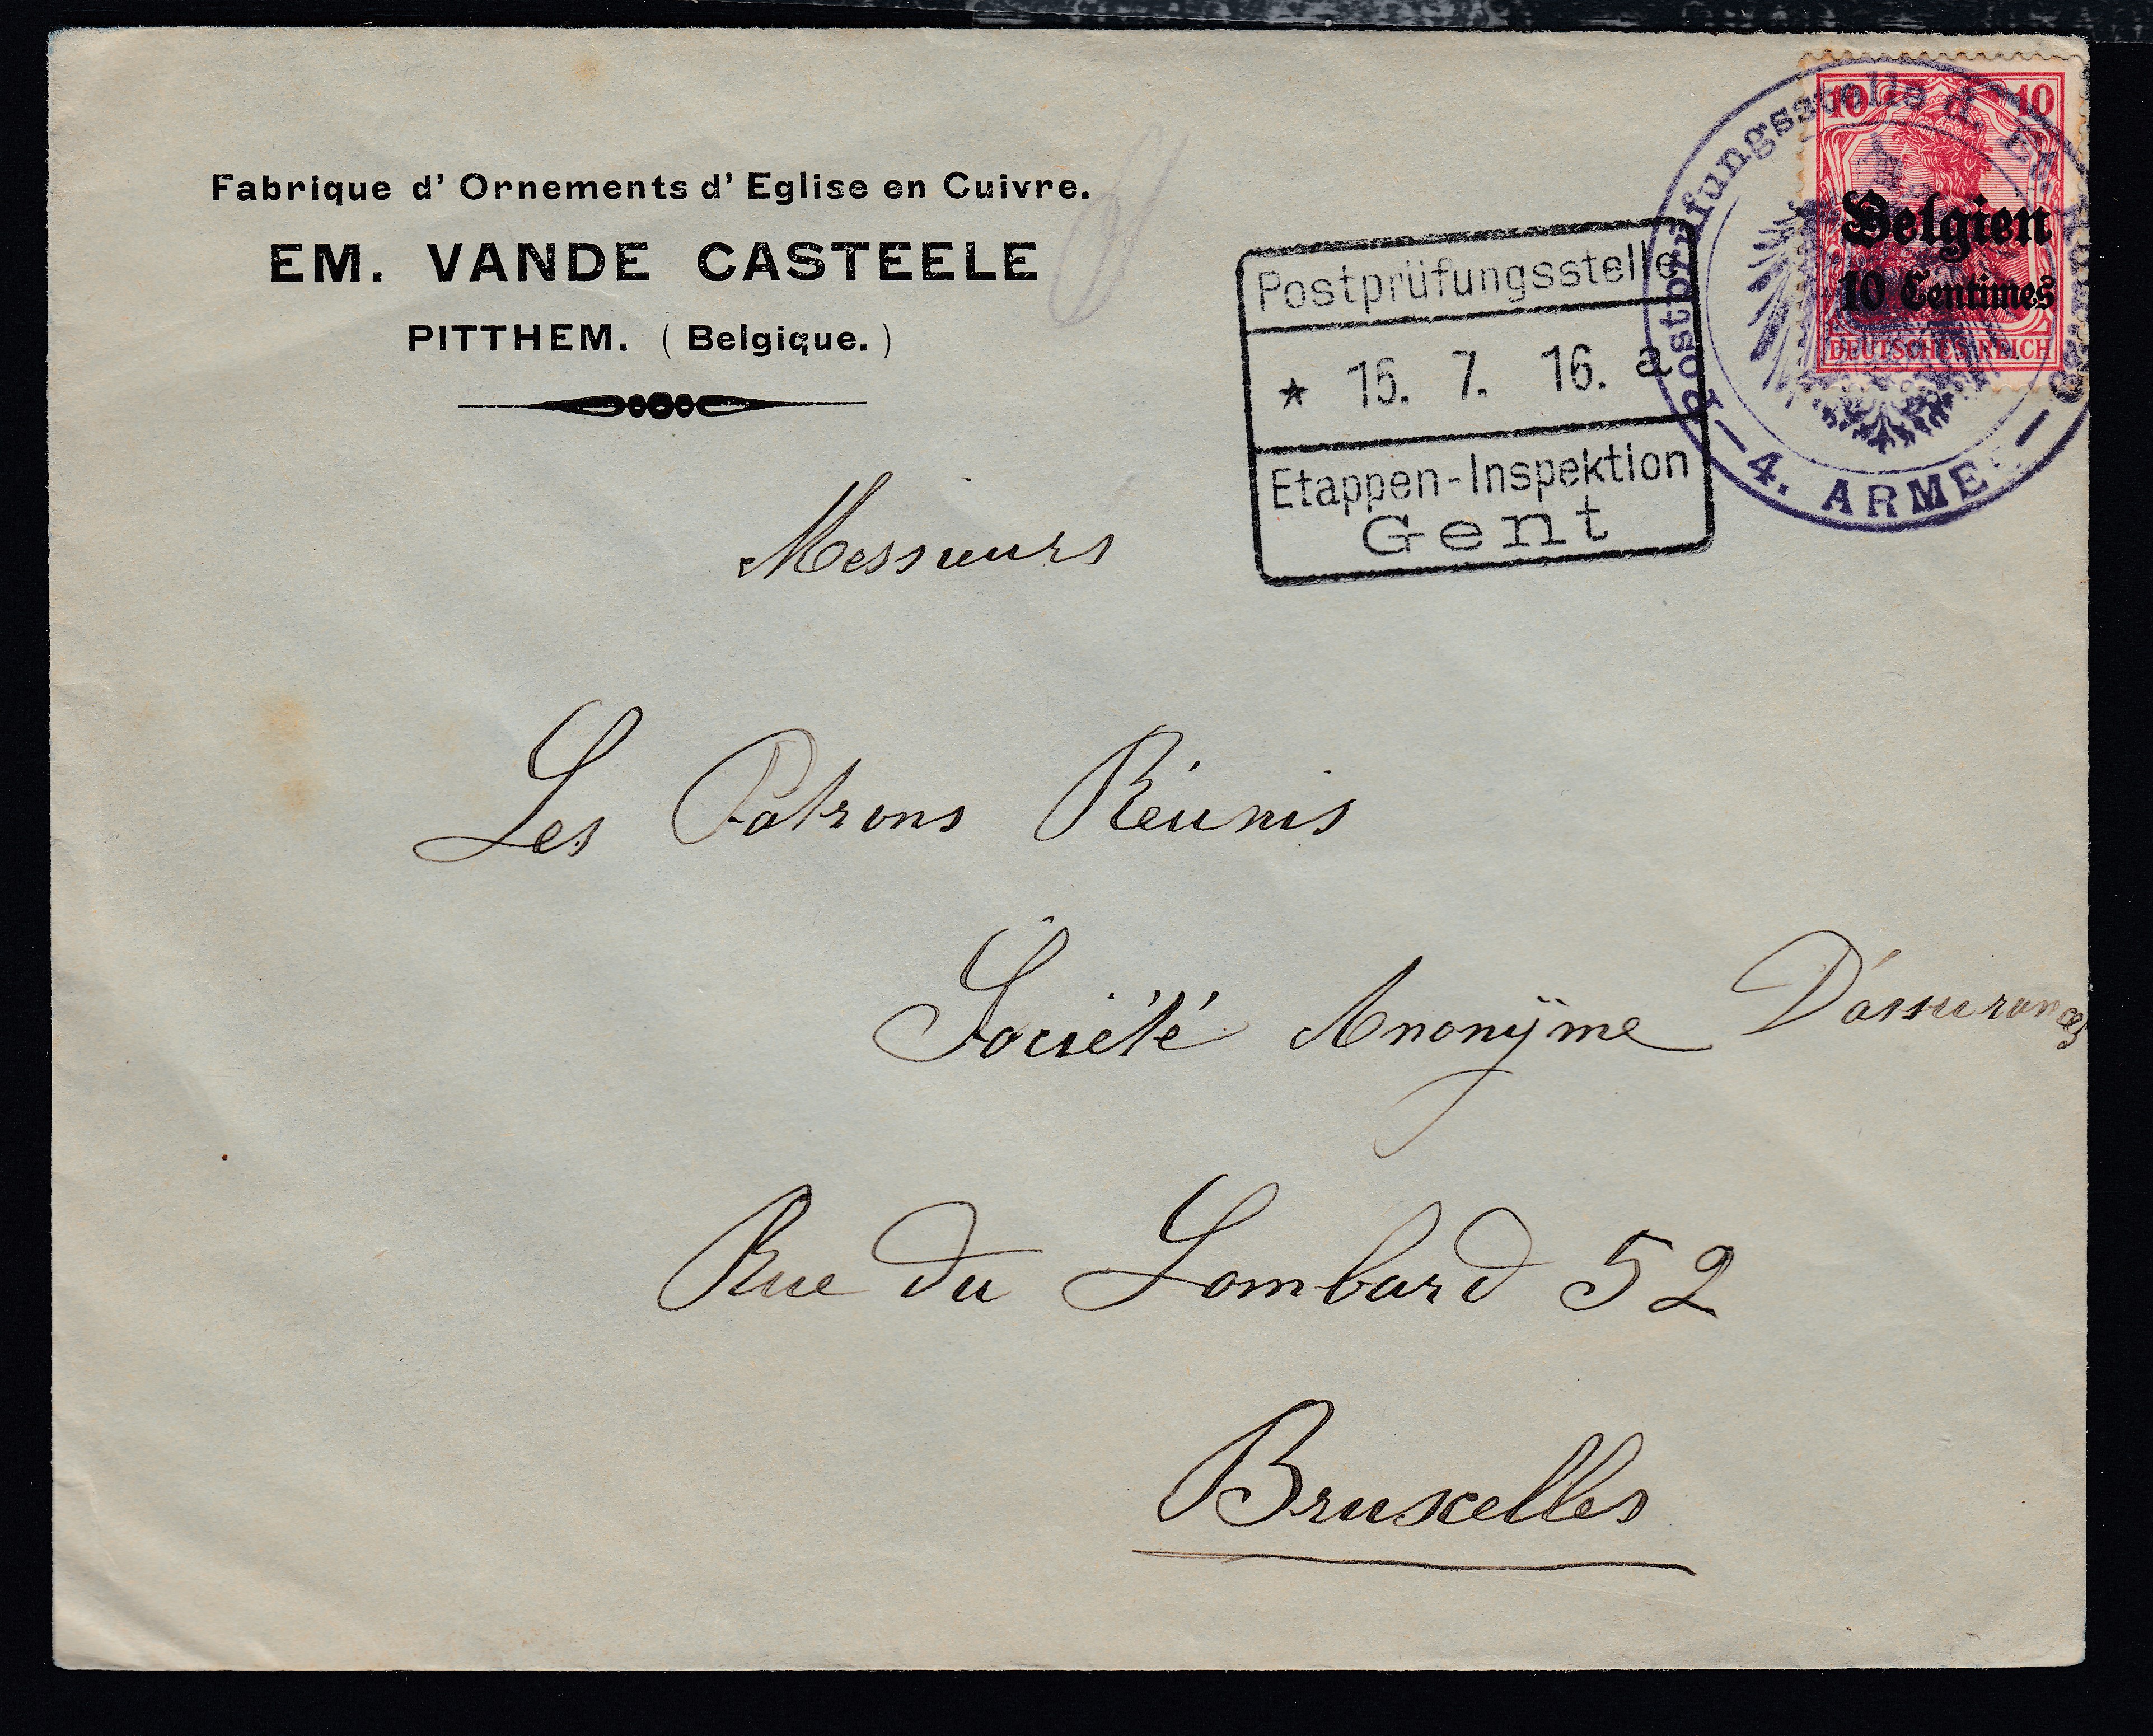 Fabrique d' Ornements d' Eglise en Cuivre.
EM. VANDE CASTEELE
PITTHEM. (Belgique.)
10 10
Belgien
10 Centimes
DEUTSCHES REICH
Postprüfungsstelle d.
4. ARMEE
Postprüfungsstelle
* 15. 7. 16. a
Etappen-Inspektion
Gent
Messieurs
Les Patrons Réunis
Société Anonÿme D'assurances
Rue du Lombard 52
Bruxelles